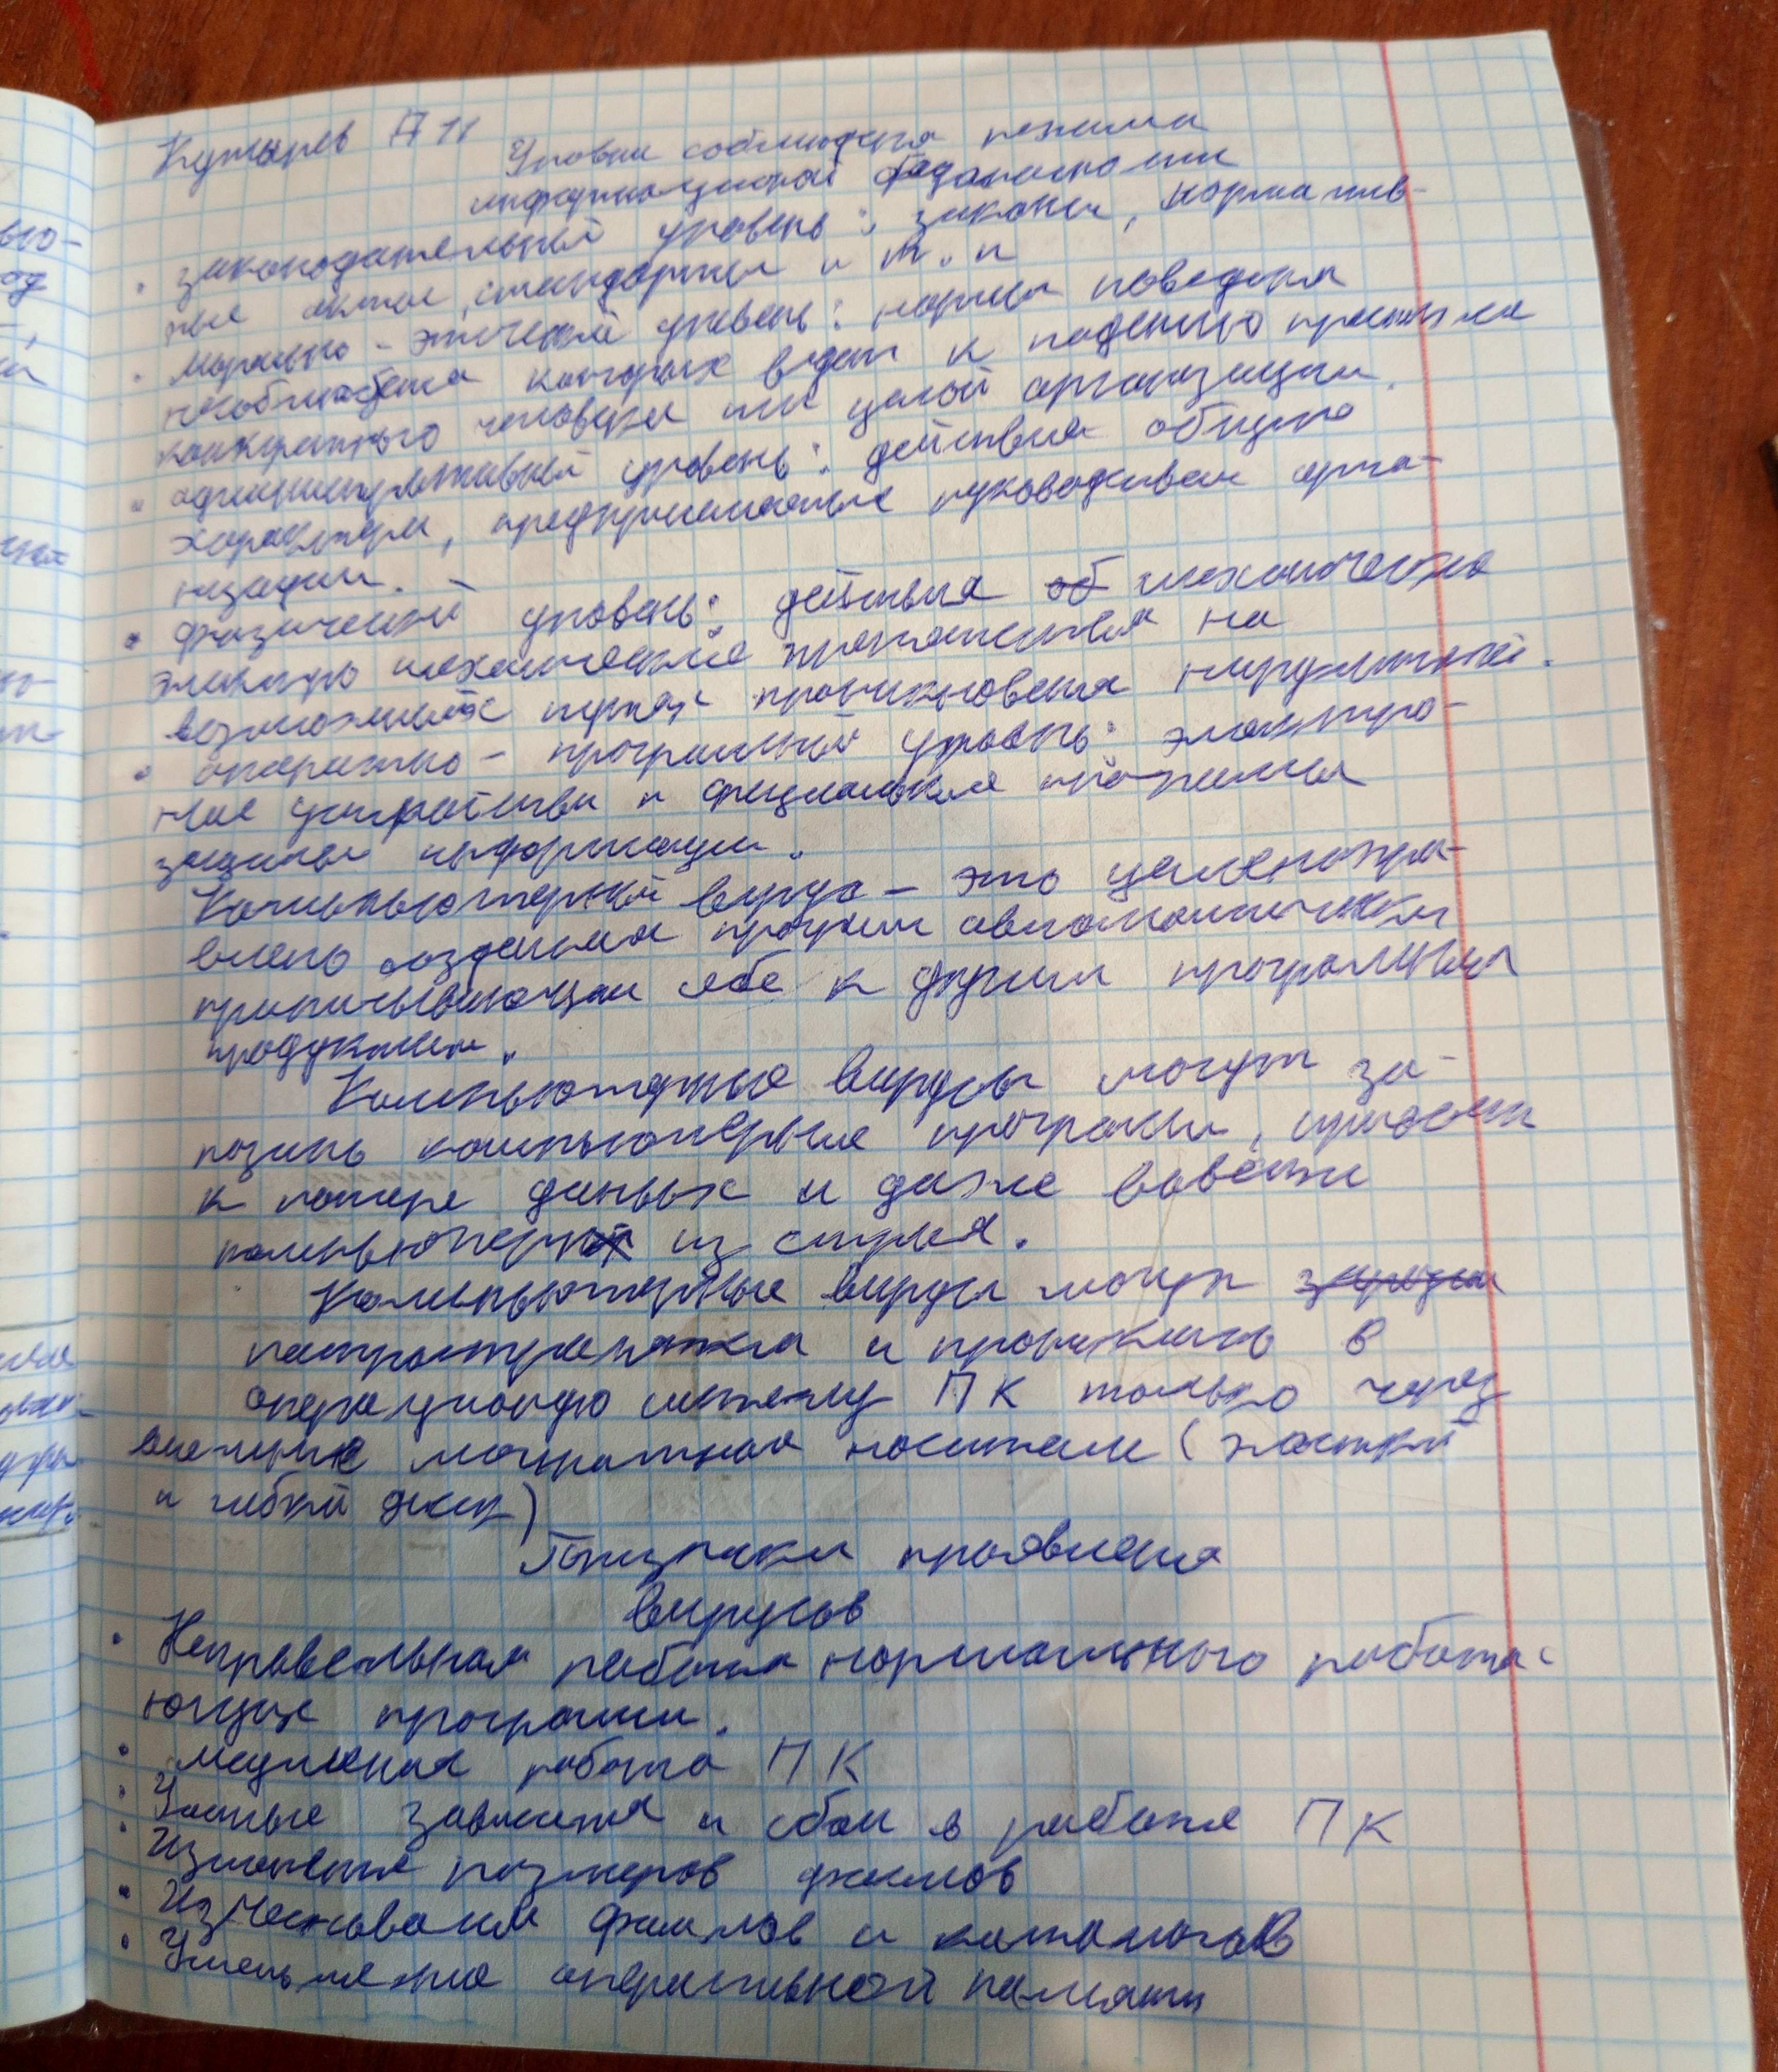 Кутырев А 11
Уровни соблюдения режима
информационной безопасности
• законодательный уровень: законы, норматив-
ные акты, стандарты и т. п
• Морально-этический уровень: нормы поведения
несоблюдение которых ведет к падению престижа
конкретного человека или целой организации.
• административный уровень: действия общего
характера, предпринимаемые руководством орга-
низации.
• физический уровень: действия механические
электро механические препятствия на
возможных путях проникновения нарушителей.
• аппаратно-программный уровень: электро-
ные устройства и специальные программы
защиты информации.
Компьютерный вирус – это целенапра-
влено созданная программа автоматически
приписывающая себя к другим программным
продуктам.
Компьютерные вирусы могут за-
разить компьютерные программы, привести
к потере данных и даже вывести
компьютер из строя.
Компьютерные вирусы могут
распространятся и проникать в
операционную систему ПК только через
внешние магнитные носители (жесткий
и гибкий диск)
Признаки проявления
вирусов
• Неправельная работа нормального работа-
ющих программ.
• Медленная работа ПК
• Частые зависания и сбои в работе ПК
• Изменение размеров файлов
• Изчезновение файлов и каталогов
• Уменьшение оперативной памяти